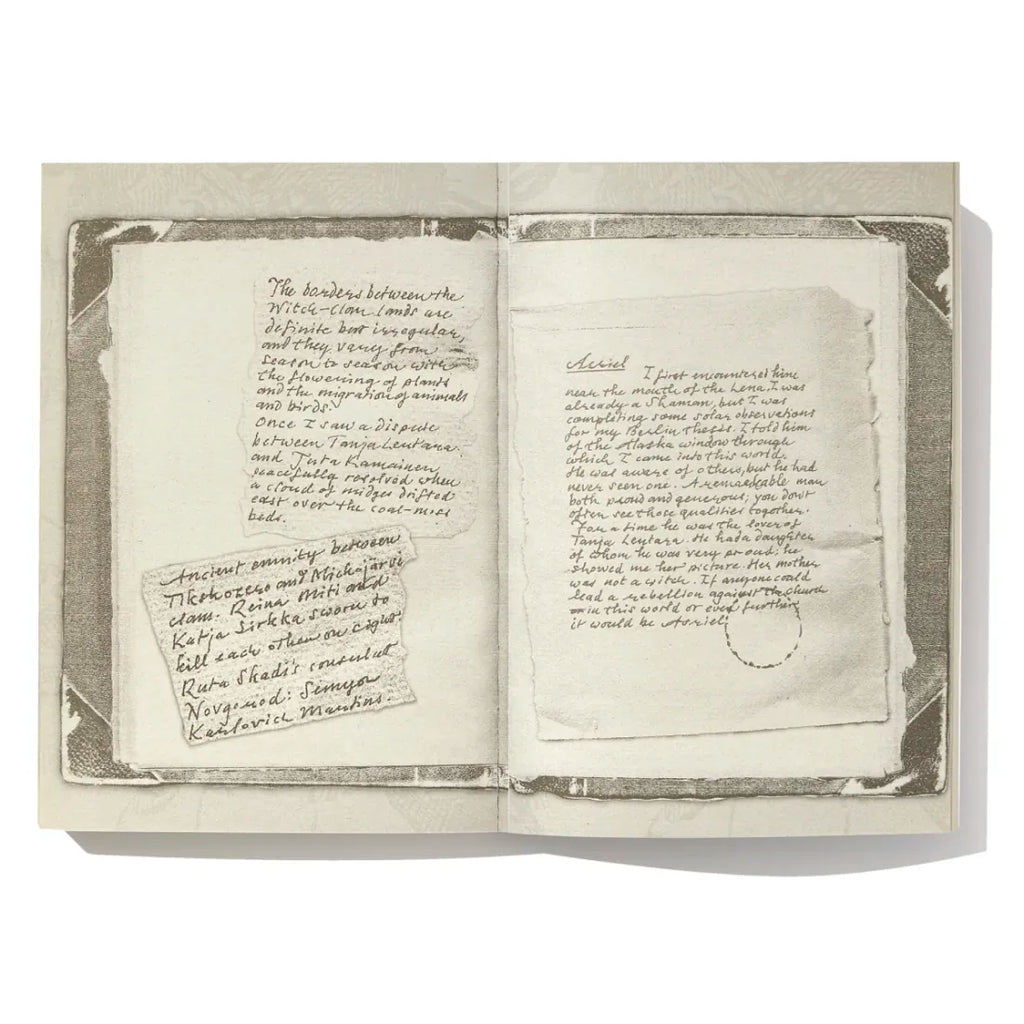 The borders between the
Witch-Clan lands are
definite but irregular,
and they vary from
season to season with
the flowering of plants
and the migration of animals
and birds.
Once I saw a dispute
between Tanja Lentara
and Juta Kamainen
peacefully resolved when
a cloud of midges drifted
east over the coal-moss
beds.
Ancient enmity between
Tikshozero and Michajärvi
clans. Reina Miti and
Katja Sirkka sworn to
kill each other on sight.
Ruta Skadi's consulat
Novgorod: Semyon
Karlovich Martins.
Asriel I first encountered him
near the mouth of the Lena. I was
already a Shaman, but I was
completing some solar observations
for my Berlin thesis. I told him
of the Alaska window through
which I came into this world.
He was aware of others, but he had
never seen one. A remarkable man
both proud and generous; you don't
often see those qualities together.
For a time he was the lover of
Tanja Lentara. He had a daughter
of whom he was very proud; he
showed me her picture. Her mother
was not a witch. If anyone could
lead a rebellion against the church
in this world or even further
it would be Asriel.